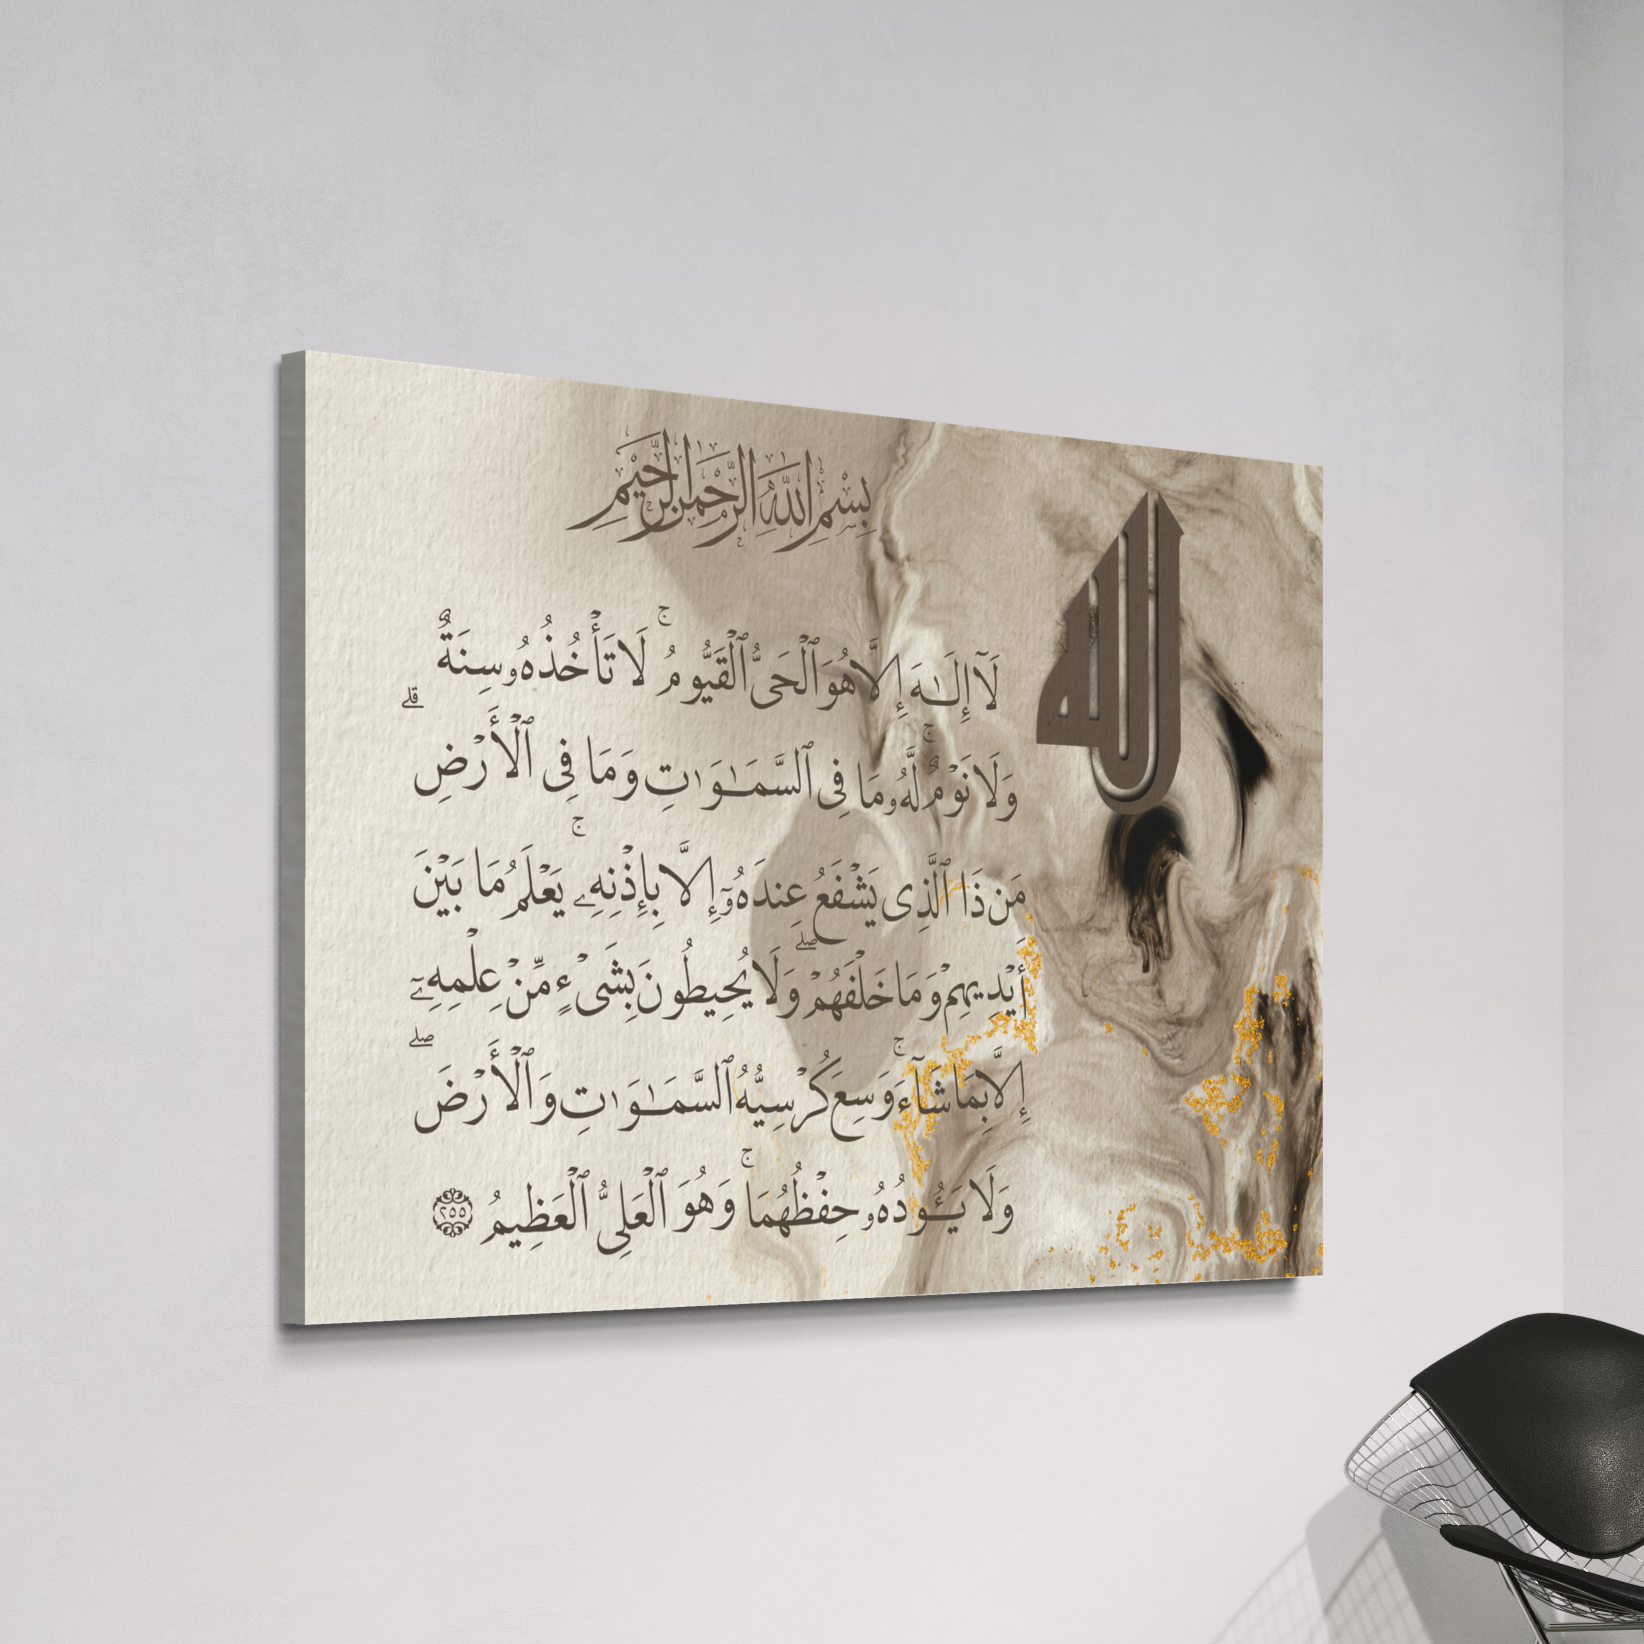 بِسْمِ اللَّهِ الرَّحْمَنِ الرَّحِيمِ
الله
لَآ إِلَٰهَ إِلَّا هُوَ ٱلْحَىُّ ٱلْقَيُّومُ ۚ لَا تَأْخُذُهُۥ سِنَةٌ
وَلَا نَوْمٌ ۚ لَّهُۥ مَا فِى ٱلسَّمَٰوَٰتِ وَمَا فِى ٱلْأَرْضِ ۗ
مَن ذَا ٱلَّذِى يَشْفَعُ عِندَهُۥٓ إِلَّا بِإِذْنِهِۦ ۚ يَعْلَمُ مَا بَيْنَ
أَيْدِيهِمْ وَمَا خَلْفَهُمْ ۖ وَلَا يُحِيطُونَ بِشَىْءٍ مِّنْ عِلْمِهِۦٓ
إِلَّا بِمَا شَآءَ ۚ وَسِعَ كُرْسِيُّهُ ٱلسَّمَٰوَٰتِ وَٱلْأَرْضَ ۖ
وَلَا يَـُٔودُهُۥ حِفْظُهُمَا ۚ وَهُوَ ٱلْعَلِىُّ ٱلْعَظِيمُ ٢٥٥